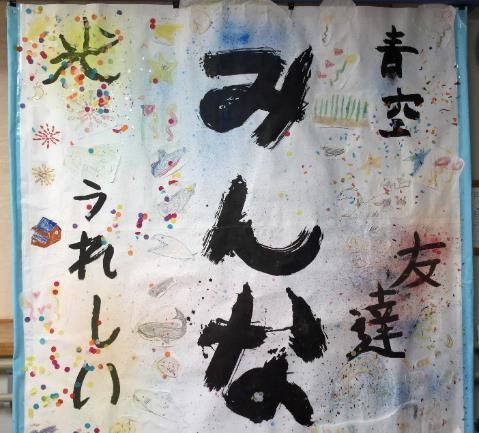 青空
友達
みんな
光
うれしい